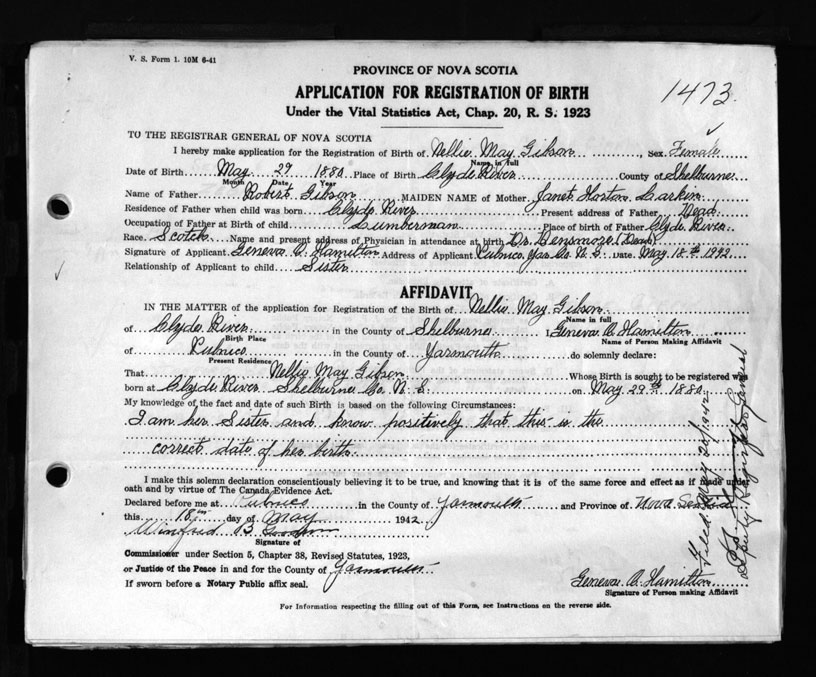 V. S. Form 1. 10M 6-41
PROVINCE OF NOVA SCOTIA
APPLICATION FOR REGISTRATION OF BIRTH
1473.
Under the Vital Statistics Act, Chap. 20, R. S. 1923
TO THE REGISTRAR GENERAL OF NOVA SCOTIA
I hereby make application for the Registration of Birth of Nellie May Gibson, Sex Female
Name in full
Date of Birth May 29 1880 Place of Birth Clyde River County of Shelburne
Month Date Year
Name of Father Robert Gibson MAIDEN NAME of Mother Janet Horton Larkin
Residence of Father when child was born Clyde River Present address of Father Dead
Occupation of Father at Birth of child Lumberman Place of birth of Father Clyde River
Race Scotch Name and present address of Physician in attendance at birth Dr. Densmore (Dead)
Signature of Applicant Geneva A. Hamilton Address of Applicant Pubnico, Yar. Co. N. S. Date May 18th 1942
Relationship of Applicant to child Sister
AFFIDAVIT
IN THE MATTER of the application for Registration of the Birth of Nellie May Gibson
Name in full
of Clyde River in the County of Shelburne I, Geneva A. Hamilton
Birth Place Name of Person Making Affidavit
of Pubnico in the County of Yarmouth do solemnly declare:
Present Residence
That Nellie May Gibson Whose Birth is sought to be registered was
born at Clyde River Shelburne Co. N. S. on May 29th 1880
My knowledge of the fact and date of such Birth is based on the following Circumstances:
I am her Sister and know positively that this is the
correct date of her birth.
I make this solemn declaration conscientiously believing it to be true, and knowing that it is of the same force and effect as if made under
oath and by virtue of The Canada Evidence Act.
Declared before me at Pubnico in the County of Yarmouth and Province of Nova Scotia
this 18th day of May 1942
Winifred B.
Signature of
Commissioner under Section 5, Chapter 38, Revised Statutes, 1923,
or Justice of the Peace in and for the County of Yarmouth
If sworn before a Notary Public affix seal.
Geneva A. Hamilton
Signature of Person making Affidavit
For Information respecting the filling out of this Form, see Instructions on the reverse side.
Filed May 20/1942
Deputy Registrar General